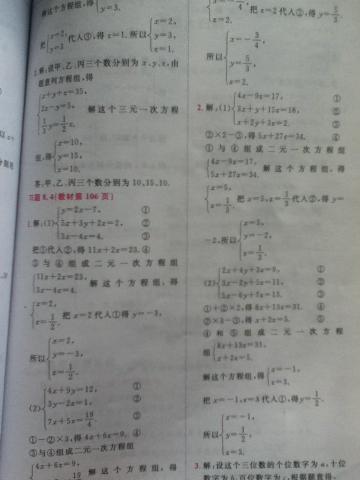 解这个方程组,得
y=3.
把
x=2,
y=3
代入①,得z=1.所以
x=2,
y=3,
z=1.
2.解:设甲、乙、丙三个数分别为x,y,z,由
题意列方程组,得
x+y+z=35,
2x-y=5,
1/3 y=1/2 z.
解这个三元一次方程
组,得
x=10,
y=15,
z=10.
答:甲、乙、丙三个数分别为10,15,10.
习题8.4(教材第106页)
1.解:(1)
y=2x-7, ①
5x+3y+2z=2, ②
3x-4z=4. ③
把①代入②,得11x+2z=23. ④
③与④组成二元一次方程组
11x+2z=23,
3x-4z=4.
解这个方程组,得
x=2,
z=1/2.
把x=2代入①得y=-3,
所以
x=2,
y=-3,
z=1/2.
(2)
4x+9y=12, ①
3y-2z=1, ②
7x+5z=19/4. ③
①-②×3,得4x+6z=9. ④
③与④组成二元一次方程组
4x+6z=9,
解这个方程组,得
z=2.
把z=2代入②,得y=5/3,
所以
x=-3/4,
y=5/3,
z=2.
2.解:(1)
4x-9z=17, ①
3x+y+15z=18, ②
x+2y+3z=2. ③
②×2-③,得5x+27z=34. ④
①与④组成二元一次方程组
4x-9z=17,
5x+27z=34.
解这个方程组,得
x=5,
z=1/3.
把x=5,z=1/3代入②,得y=
-2.所以
x=5,
y=-2,
z=1/3.
(2)
2x+4y+3z=9, ①
3x-2y+5z=11, ②
5x-6y+7z=13. ③
①+②×2,得8x+13z=31. ④
②×3-③,得x+2z=5. ⑤
④和⑤组成二元一次方程
组
8x+13z=31,
x+2z=5.
解这个方程组,得
x=-1,
z=3.
把x=-1,z=3代入①,得y=1/2.
所以
x=-1,
y=1/2,
z=3.
3.解:设这个三位数的个位数字为a,十位
数字为b,百位数字为c,根据题意得